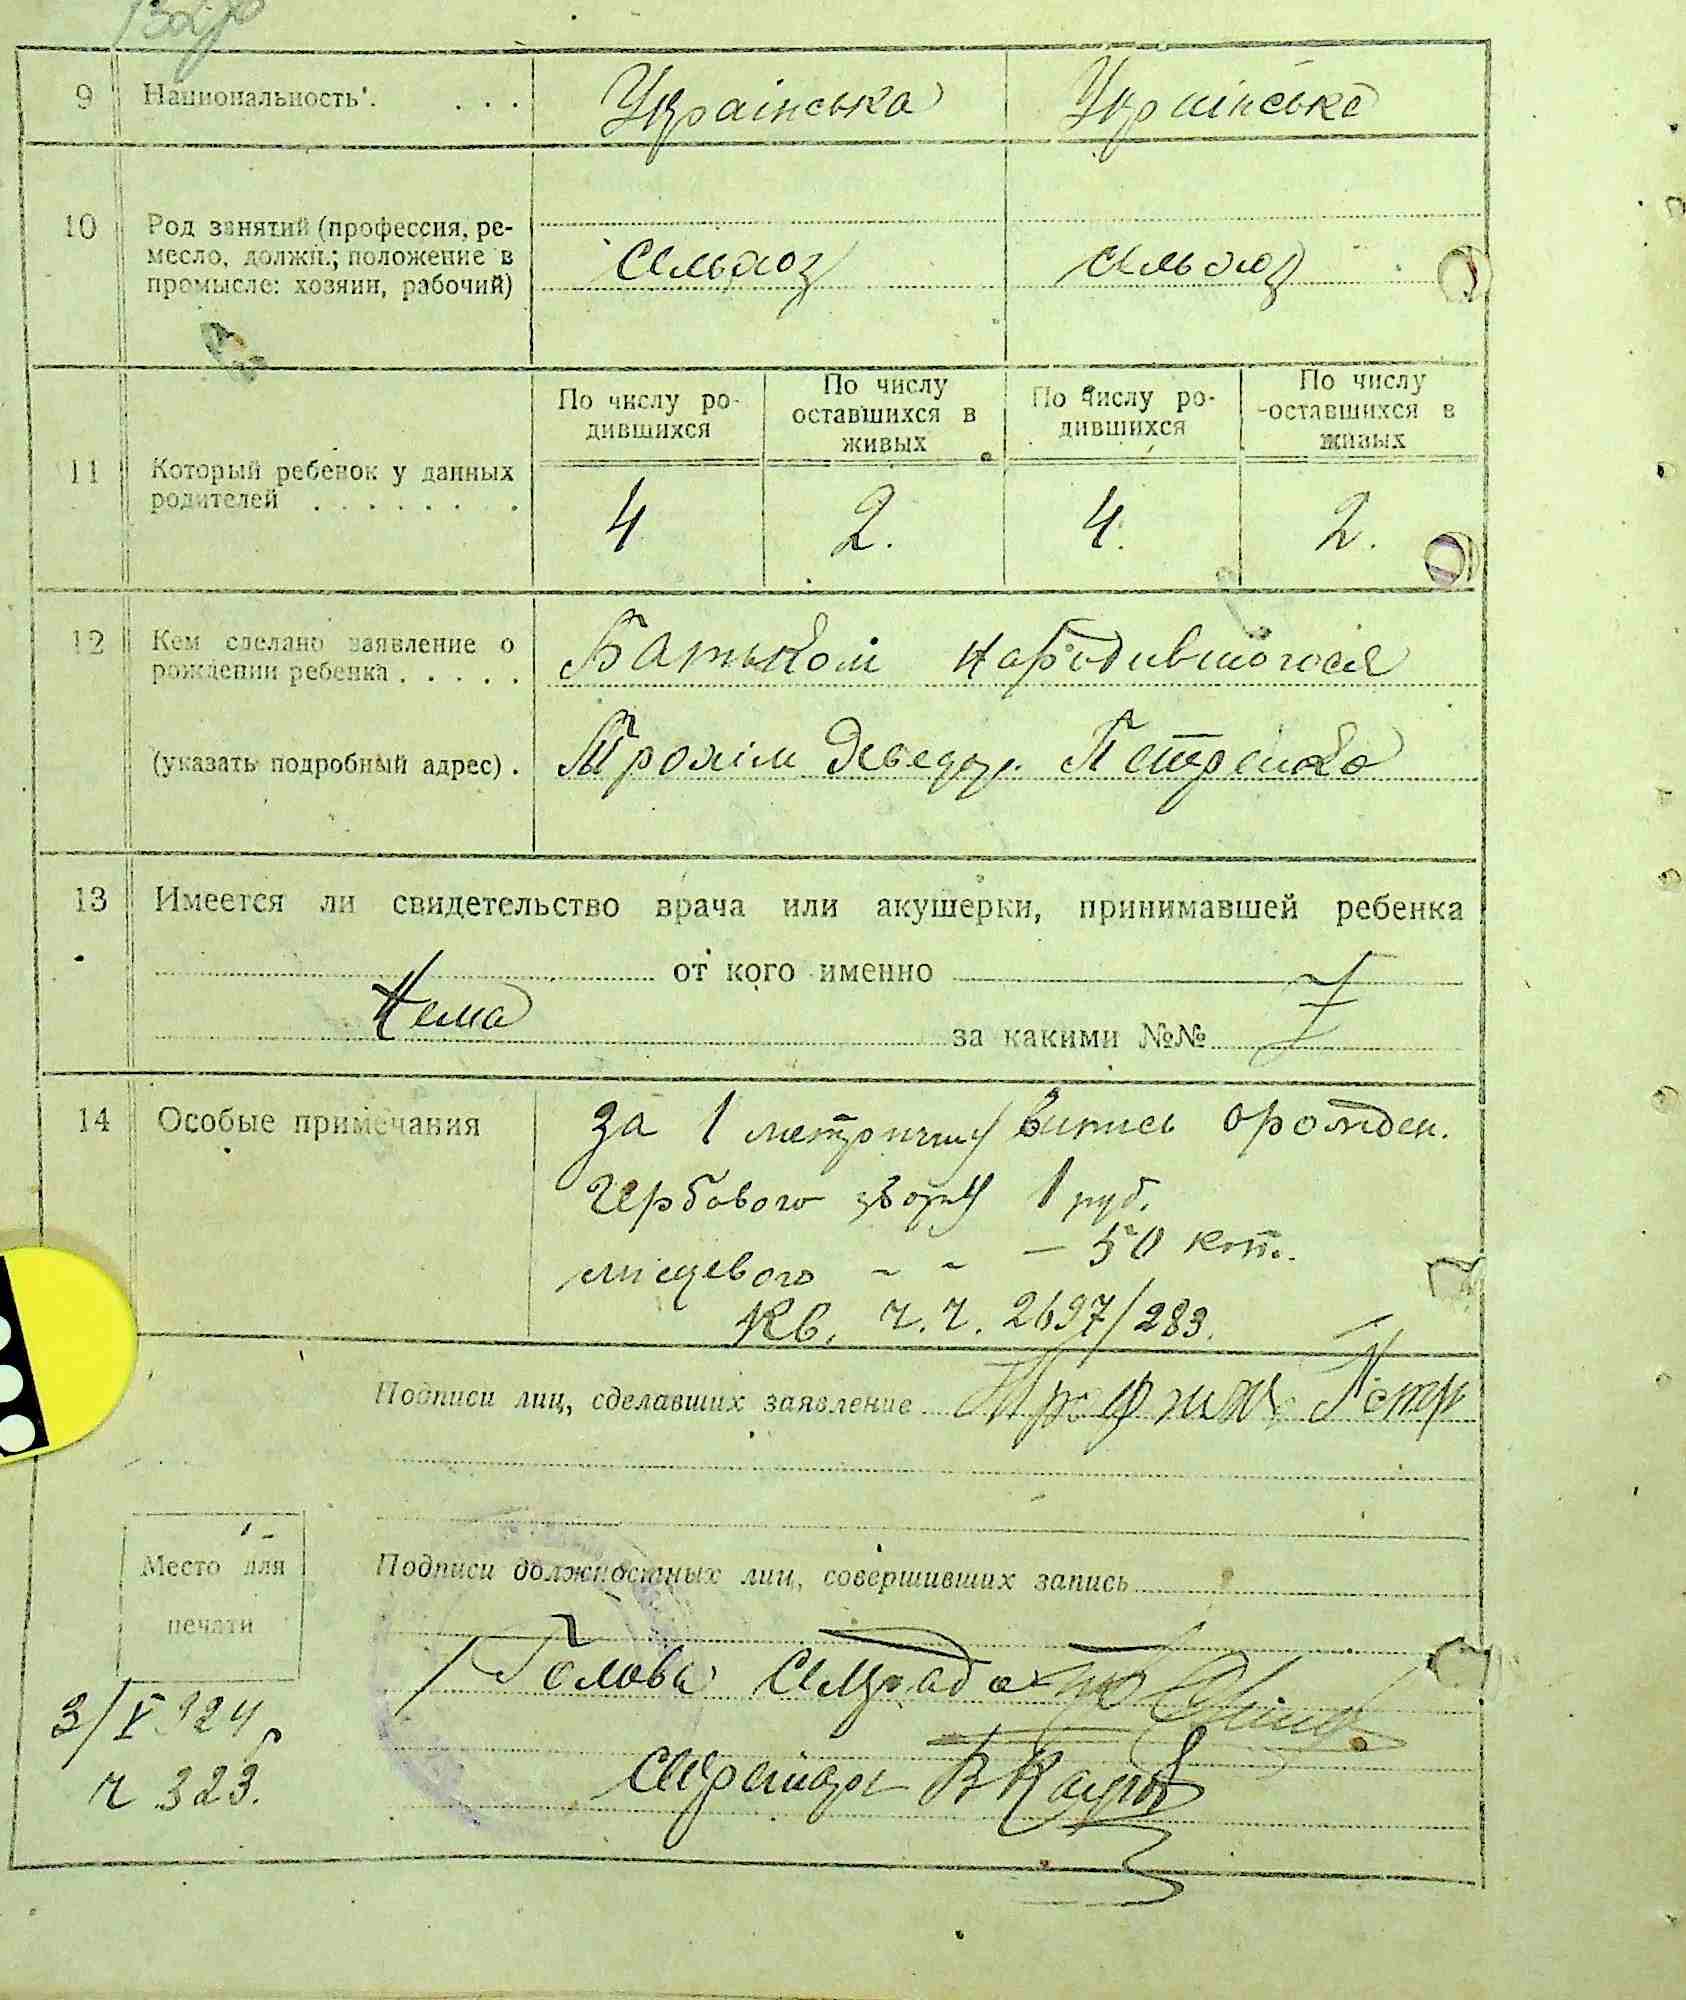 9 Национальность . . . Українська Українська
10 Род занятий (профессия, ре-
месло, должн.; положение в
промысле: хозяин, рабочий)
сельхоз сельхоз
По числу ро-
дившихся
По числу
оставшихся в
живых
По числу ро-
дившихся
По числу
оставшихся в
живых
11 Который ребенок у данных
родителей . . . . . . . .
4 2. 4. 2.
12 Кем сделано заявление о
рождении ребенка . . . . .
Батьком народившогося
(указать подробный адрес) . Трохім Петренко
13 Имеется ли свидетельство врача или акушерки, принимавшей ребенка
от кого именно
Нема за какими №№
14 Особые примечания
За 1 метричну випись о рожден.
гербового збору 1 руб.
місцевого " " — 50 коп.
Кв. ч.ч. 2697/283.
Подписи лиц, сделавших заявление
Место для
печати
Подписи должностных лиц, совершивших запись
Голова сільради
3/V 924 р
ч 323.
секретарь